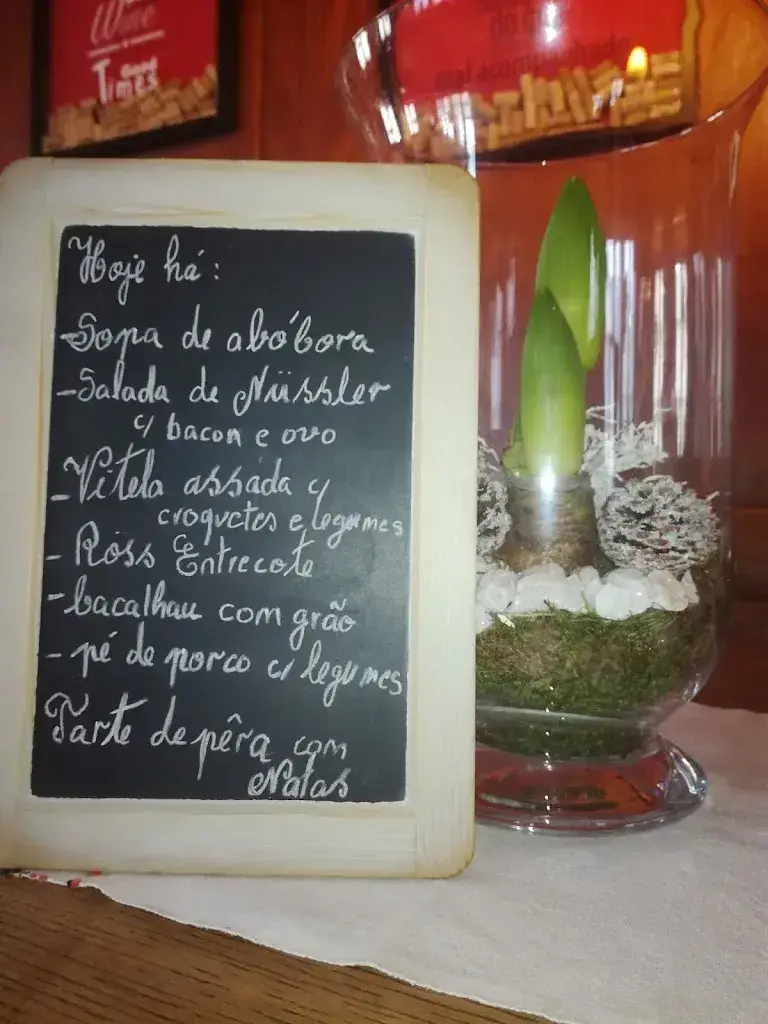 Wine
Good
Times
do que
mal acompanhado
Hoje há:
-Sopa de abóbora
-Salada de Nüssler
c/ bacon e ovo
-Vitela assada c/
croquetes e legumes
- Röss Entrecote
-bacalhau com grão
- pé de porco c/ legumes
Tarte de pêra com
Natas